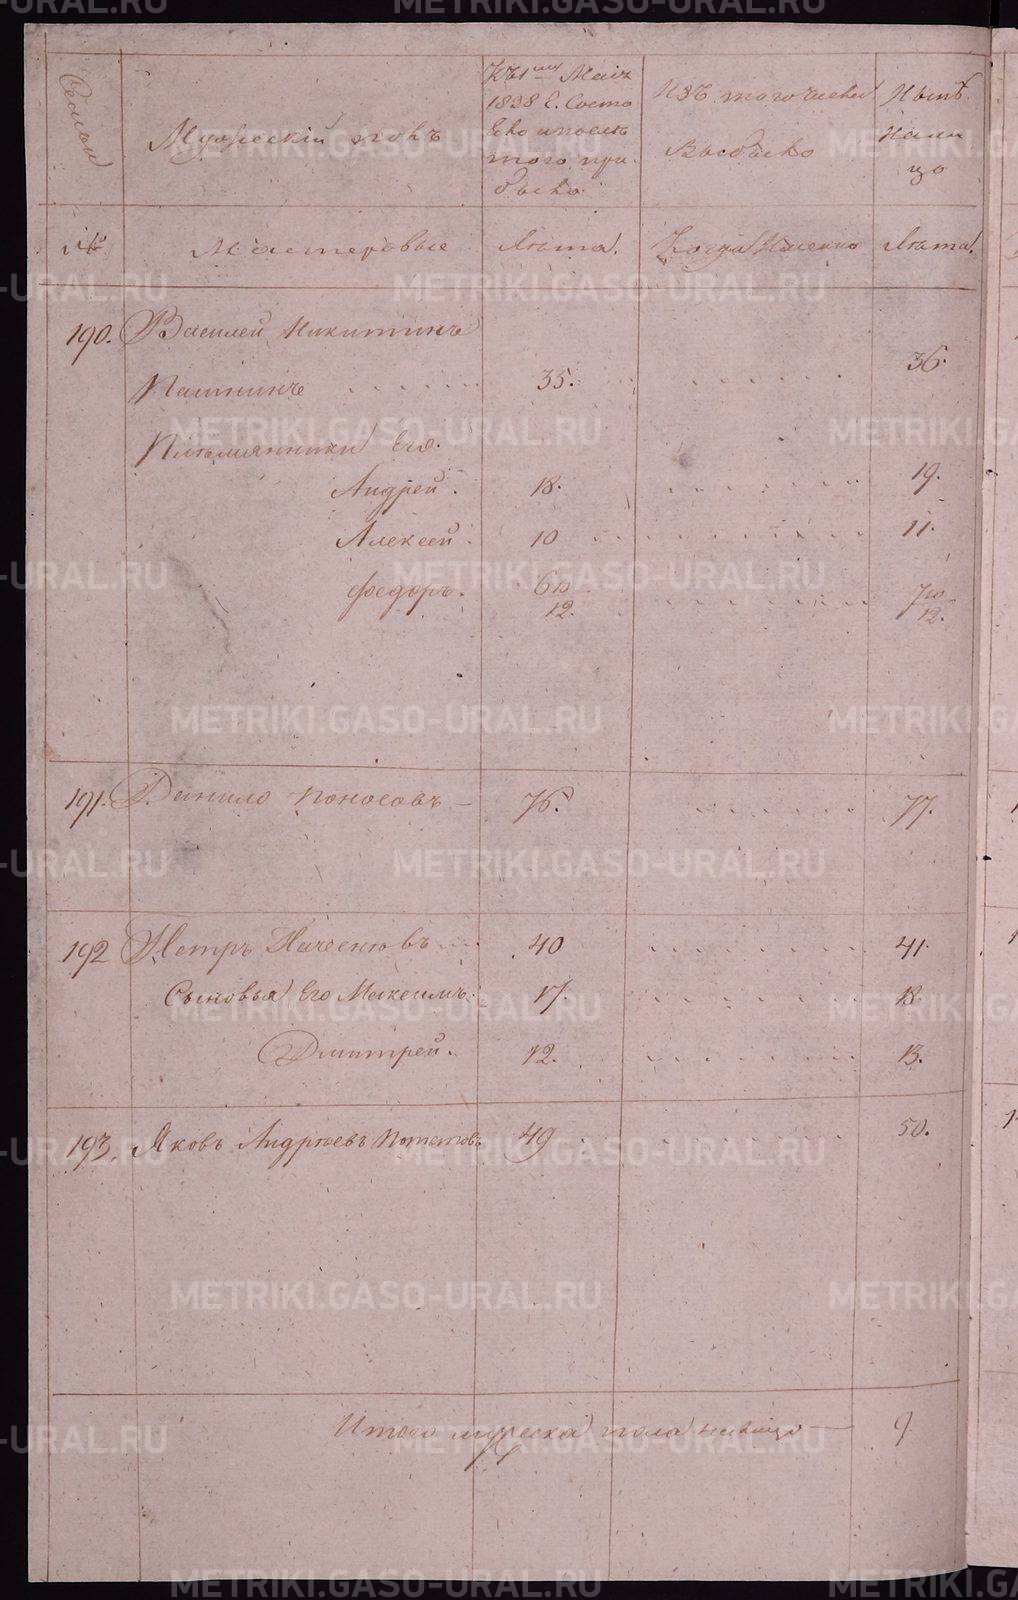 Семьи
Мужескій полъ
Къ 1му Маія
1838 г. Состо
яло и послѣ
того при
было
Изъ того числа
Выбыло
Нынѣ
Нали
цо
№
Мастеровые
Лѣта.
Когда Именно
Лѣта.
190. Василей Никитинъ
Пашнинъ 35. 36
Племянники Его.
Андрей. 18. 19.
Алексей. 10 11.
Федоръ. 6 10/12. 7 10/12.
191. Данило Поносовъ 76. 77.
192 Петръ 40 41.
Сыновья Его Максимъ. 17. 18.
Дмитрей. 12. 13.
193. Яковъ Андрѣевъ 49 50.
Итого мужеска пола налицо 9
METRIKI.GASO-URAL.RU